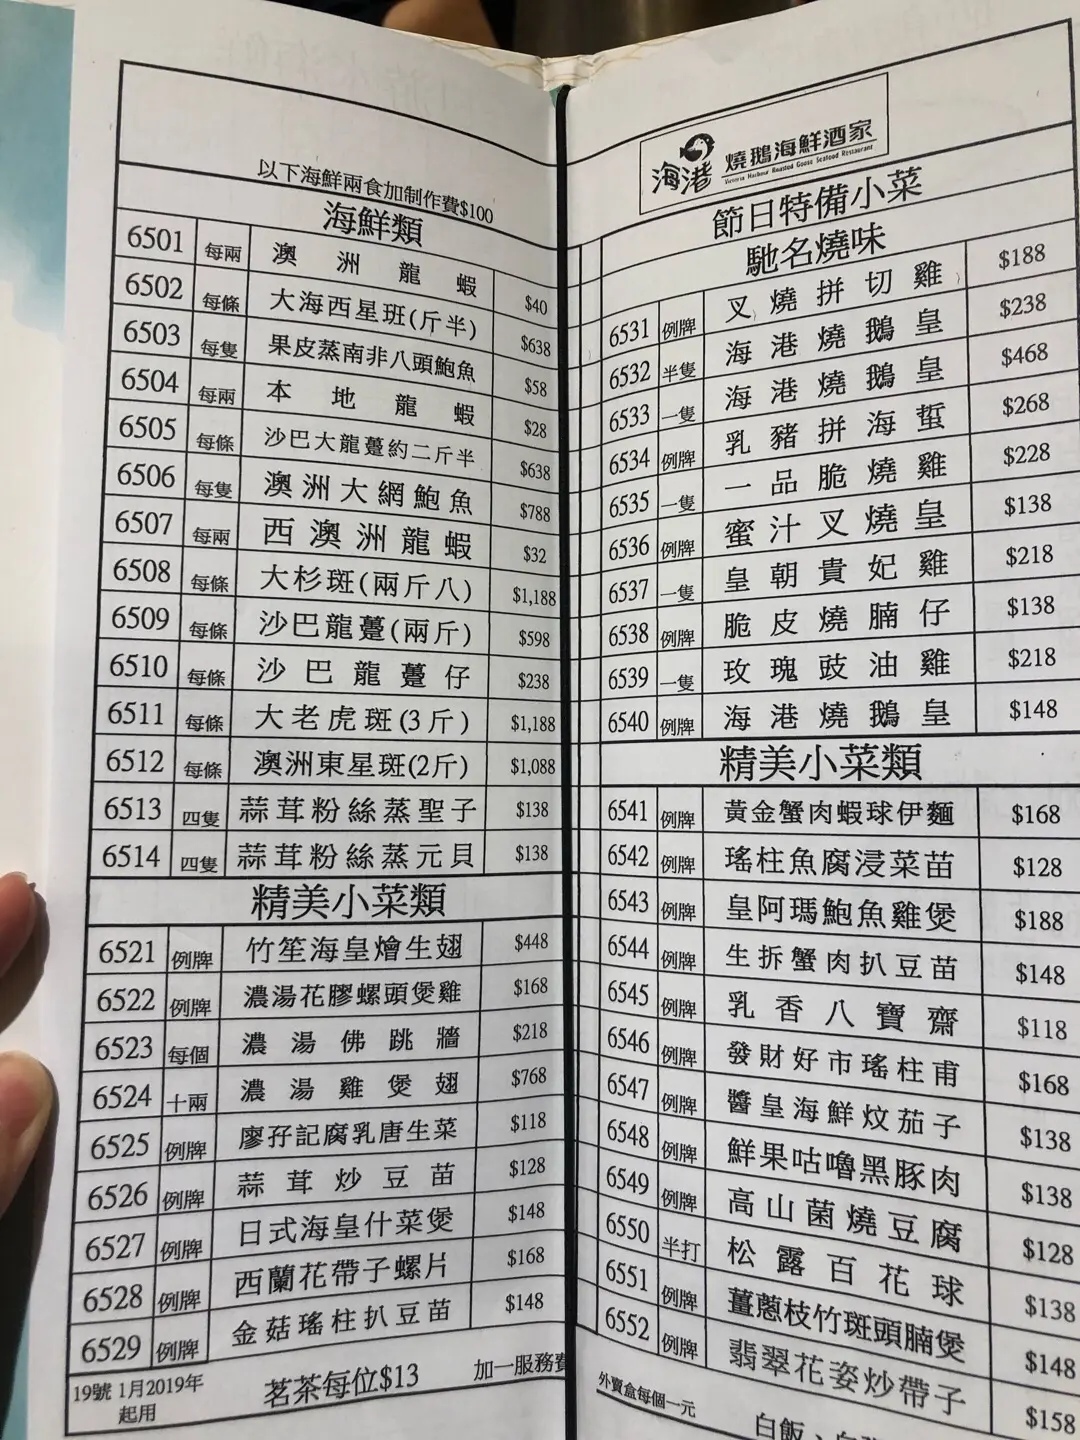 以下海鮮兩食加制作費$100
海鮮類
6501 每兩 澳洲龍蝦 $40
6502 每條 大海西星班(斤半) $638
6503 每隻 果皮蒸南非八頭鮑魚 $58
6504 每兩 本地龍蝦 $28
6505 每條 沙巴大龍躉約二斤半 $638
6506 每隻 澳洲大網鮑魚 $788
6507 每兩 西澳洲龍蝦 $32
6508 每條 大杉斑(兩斤八) $1,188
6509 每條 沙巴龍躉(兩斤) $598
6510 每條 沙巴龍躉仔 $238
6511 每條 大老虎斑(3斤) $1,188
6512 每條 澳洲東星斑(2斤) $1,088
6513 四隻 蒜茸粉絲蒸聖子 $138
6514 四隻 蒜茸粉絲蒸元貝 $138
精美小菜類
6521 例牌 竹笙海皇燴生翅 $448
6522 例牌 濃湯花膠螺頭煲雞 $168
6523 每個 濃湯佛跳牆 $218
6524 十兩 濃湯雞煲翅 $768
6525 例牌 廖孖記腐乳唐生菜 $118
6526 例牌 蒜茸炒豆苗 $128
6527 例牌 日式海皇什菜煲 $148
6528 例牌 西蘭花帶子螺片 $168
6529 例牌 金菇瑤柱扒豆苗 $148
19號 1月2019年
起用
茗茶每位$13
加一服務費
海港 燒鵝海鮮酒家
Victoria Harbour Roasted Goose Seafood Restaurant
節日特備小菜
馳名燒味
6531 例牌 叉燒拼切雞 $188
6532 半隻 海港燒鵝皇 $238
6533 一隻 海港燒鵝皇 $468
6534 例牌 乳豬拼海蜇 $268
6535 一隻 一品脆燒雞 $228
6536 例牌 蜜汁叉燒皇 $138
6537 一隻 皇朝貴妃雞 $218
6538 例牌 脆皮燒腩仔 $138
6539 一隻 玫瑰豉油雞 $218
6540 例牌 海港燒鵝皇 $148
精美小菜類
6541 例牌 黃金蟹肉蝦球伊麵 $168
6542 例牌 瑤柱魚腐浸菜苗 $128
6543 例牌 皇阿瑪鮑魚雞煲 $188
6544 例牌 生拆蟹肉扒豆苗 $148
6545 例牌 乳香八寶齋 $118
6546 例牌 發財好市瑤柱甫 $168
6547 例牌 醬皇海鮮炆茄子 $138
6548 例牌 鮮果咕嚕黑豚肉 $138
6549 例牌 高山菌燒豆腐 $128
6550 半打 松露百花球 $138
6551 例牌 薑蔥枝竹斑頭腩煲 $148
6552 例牌 翡翠花姿炒帶子 $158
外賣盒每個一元
白飯、